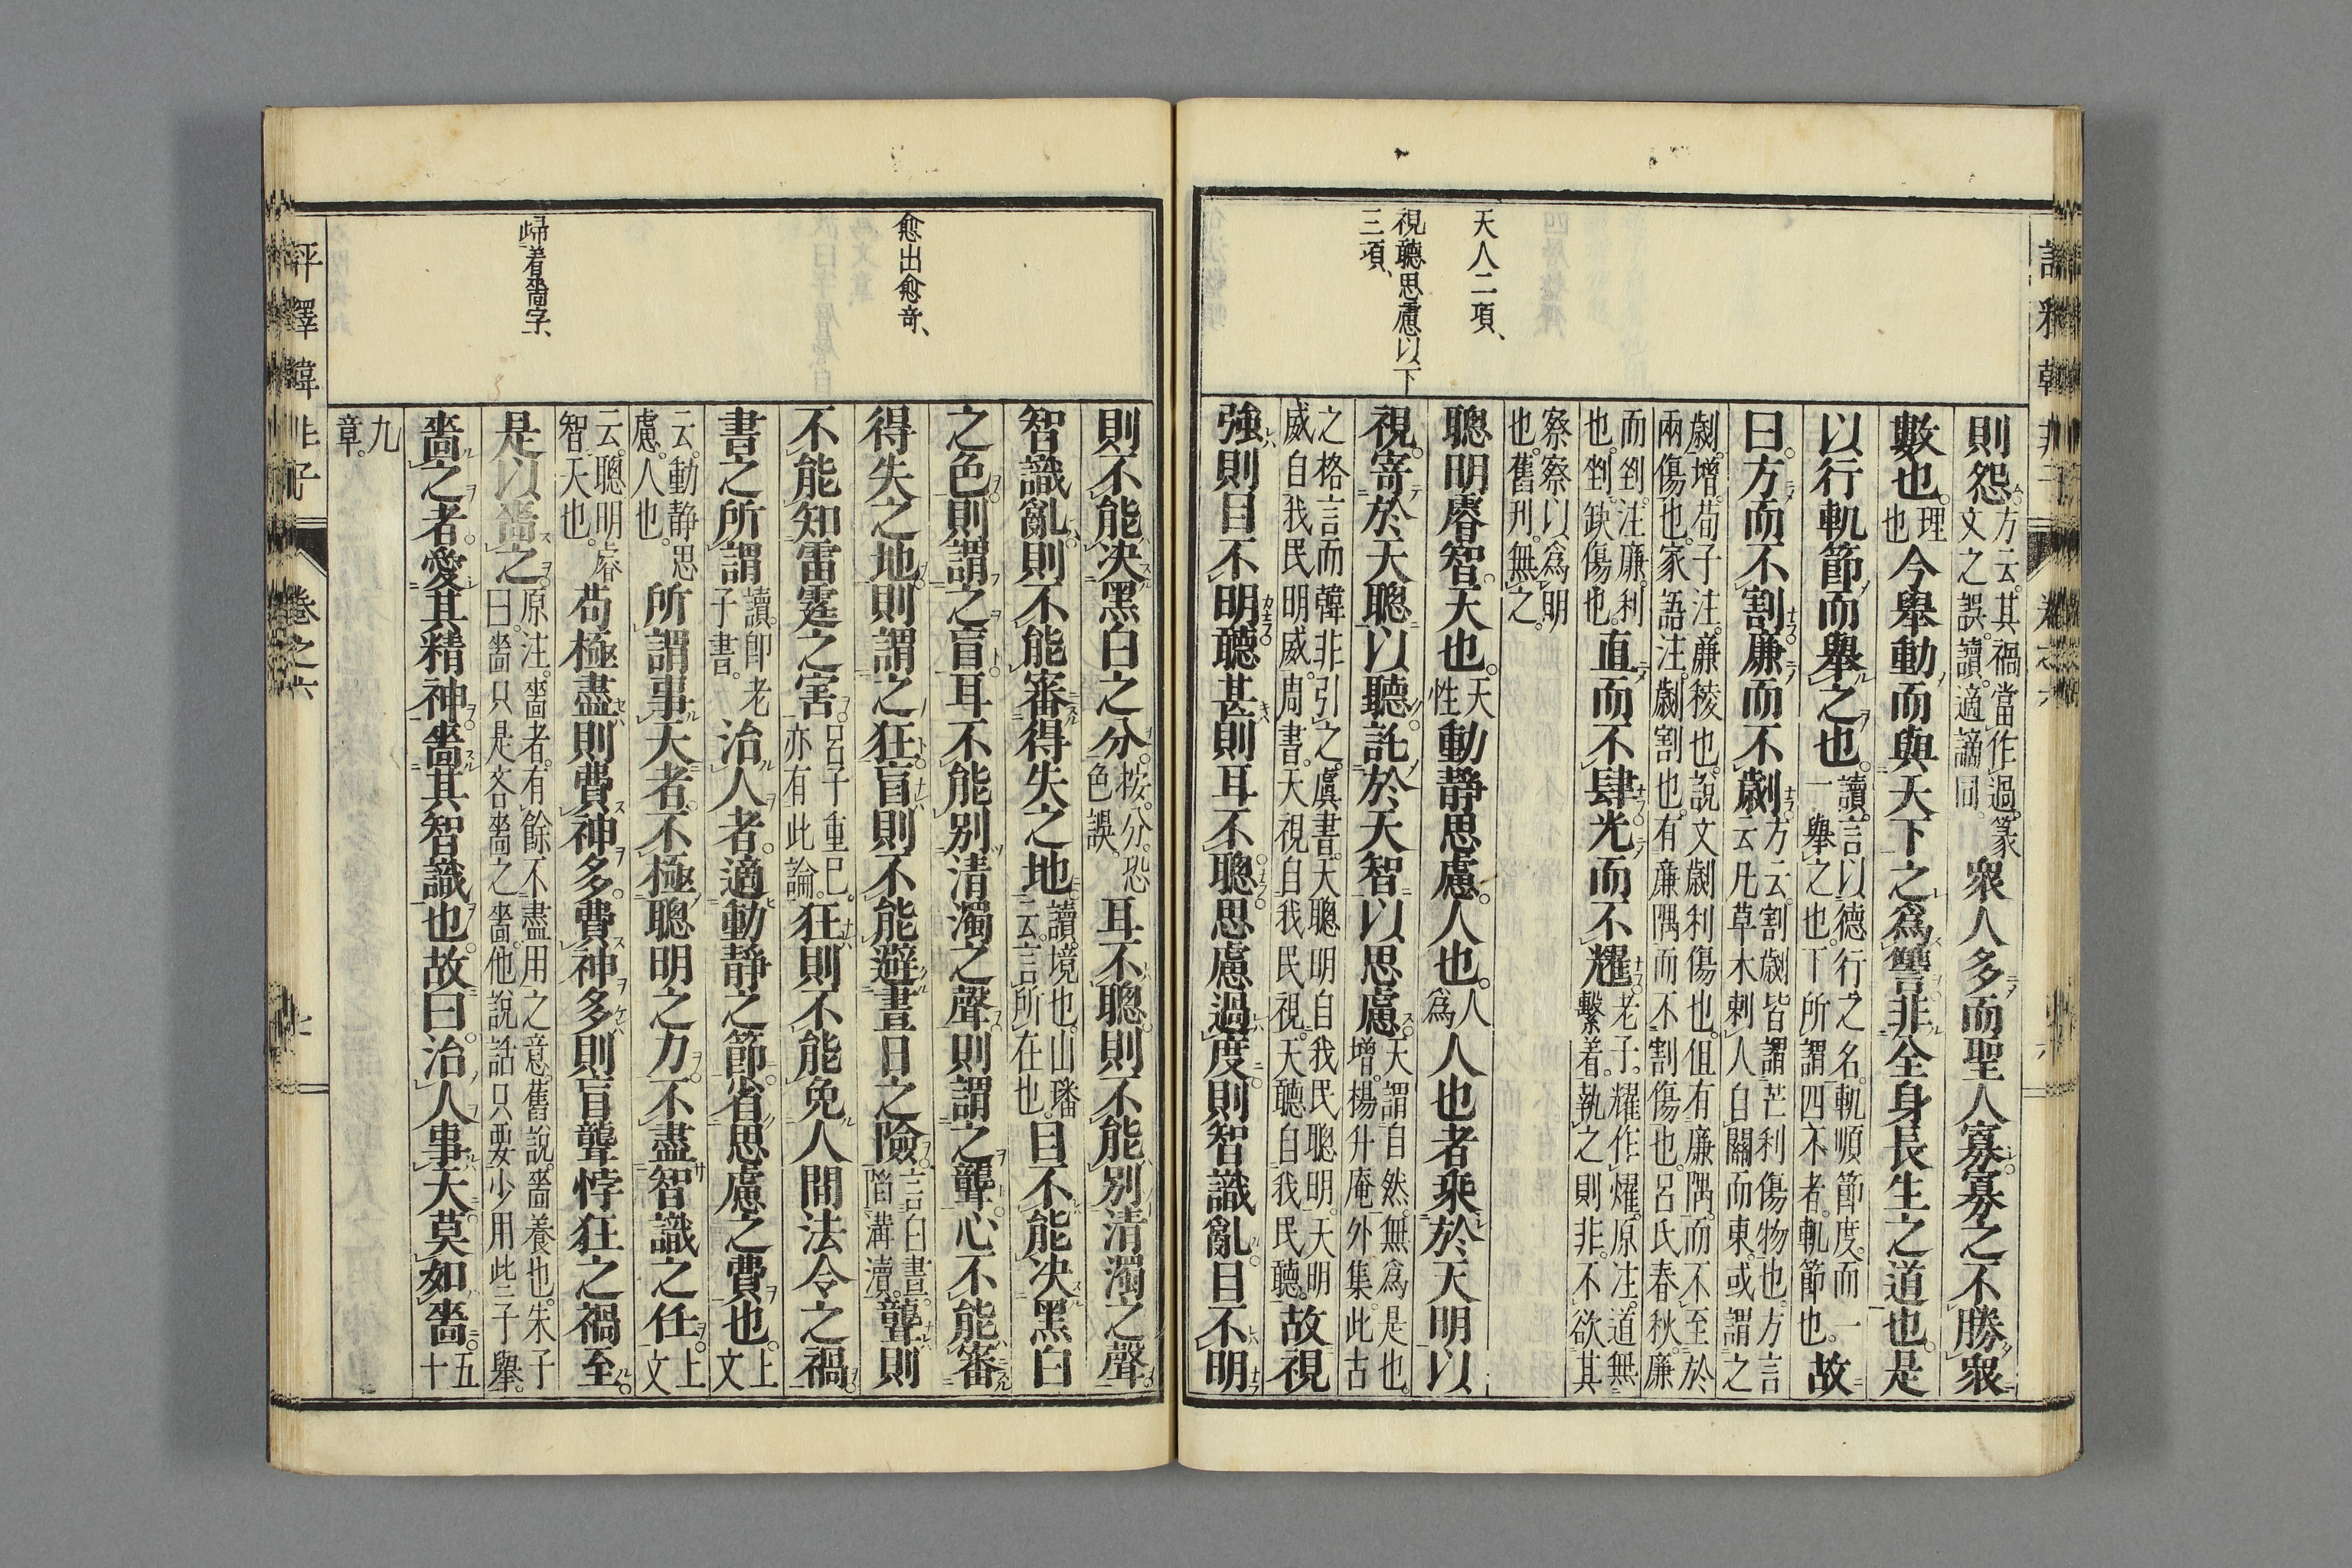 天人二項、
視聽思慮以下
三項、
則怨方云。其禍當作過。篆
文之誤。讀。適謫同。衆人多而聖人寡。寡之不勝衆
數也。理
也今舉動而與天下之爲讐。非全身長生之道也。是
以行軌節而舉之也。讀。言以德行之名。軌順節度。而一
一舉之也。下所謂四不者。軌節也。故
曰。方而不割。廉而不劌。方云。割劌皆謂芒利傷物也。方言
云。凡草木刺人。自關而東。或謂之
劌。增。荀子注。廉稜也。說文。劌利傷也。但有廉隅。而不至於
兩傷也。家語注。劌割也。有廉隅而不割傷也。呂氏春秋。廉
而剉。注。廉利
也。剉。缺傷也。直而不肆。光而不耀。老子。耀作燿。原注。道無
繫着。執之則非。不欲其
察察以爲明
也。舊刋。無之。
聰明睿智。天也。天
性動静思慮。人也。人
爲人也者。乘於天明以
視。寄於天聰以聽。託於天智以思慮。天謂自然。無爲是也。
增。楊升庵外集。此古
之格言而韓非引之。虞書。天聰明自我民聰明。天明
威自我民明威。周書。天視自我民視。天聽自我民聽。故視
強則目不明。聽甚則耳不聰。思慮過度則智識亂。目不明
愈出愈竒、
歸着嗇字、
則不能決黑白之分。按。分。恐
色誤。耳不聰。則不能別清濁之聲
智識亂。則不能審得失之地。讀。境也。山璠
云。言所在也。目不能決黑白
之色。則謂之盲。耳不能別清濁之聲。則謂之聾。心不能審
得失之地。則謂之狂。盲則不能避晝日之險。言白晝。
陷溝瀆。聾則
不能知雷霆之害。呂子重已。
亦有此論。狂則不能免人間法令之禍。
書之所謂讀。即老
子書。治人者。適動静之節。省思慮之費也。上
文
云。動静思
慮。人也。所謂事天者。不極聰明之力。不盡智識之任。上
文
云。聰明睿
智。天也。苟極盡則費神多。費神多則盲聾悖狂之禍至。
是以嗇之。原注。嗇者。有餘不盡用之意。舊說。嗇養也。朱子
曰。嗇只是吝嗇之嗇。他說話只要少用此子舉。
嗇之者。愛其精神。嗇其智識也。故曰。治人事天。莫如嗇。五
十
九
章。
評釋韓非子 卷之六